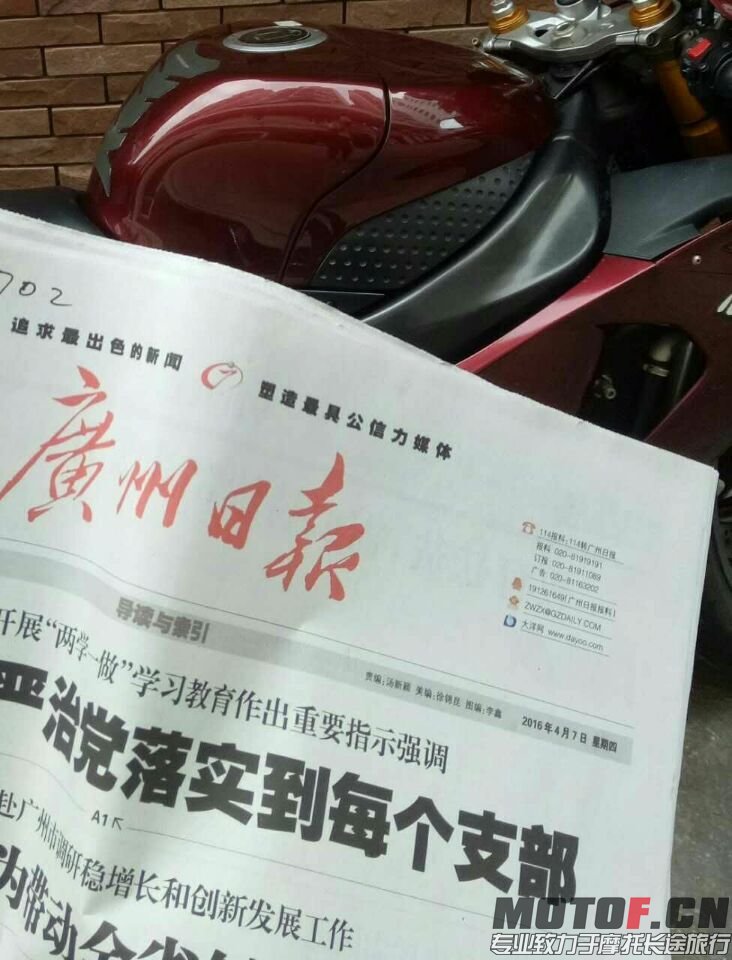 702
追求最出色的新闻
塑造最具公信力媒体
廣州日報
114报料:114转广州日报
报料 020-81919191
订报 020-81911089
广告 020-81163202
191261649(广州日报报料)
ZWZX@GZDAILY.COM
大洋网 www.dayoo.com
导读与索引
责编:汤新颖 美编:徐锦昆 图编:李鑫
2016年4月7日 星期四
开展“两学一做”学习教育作出重要指示强调
严治党落实到每个支部
A1
赴广州市调研稳增长和创新发展工作
为带动全省
MOTOF.CN
专业致力于摩托长途旅行